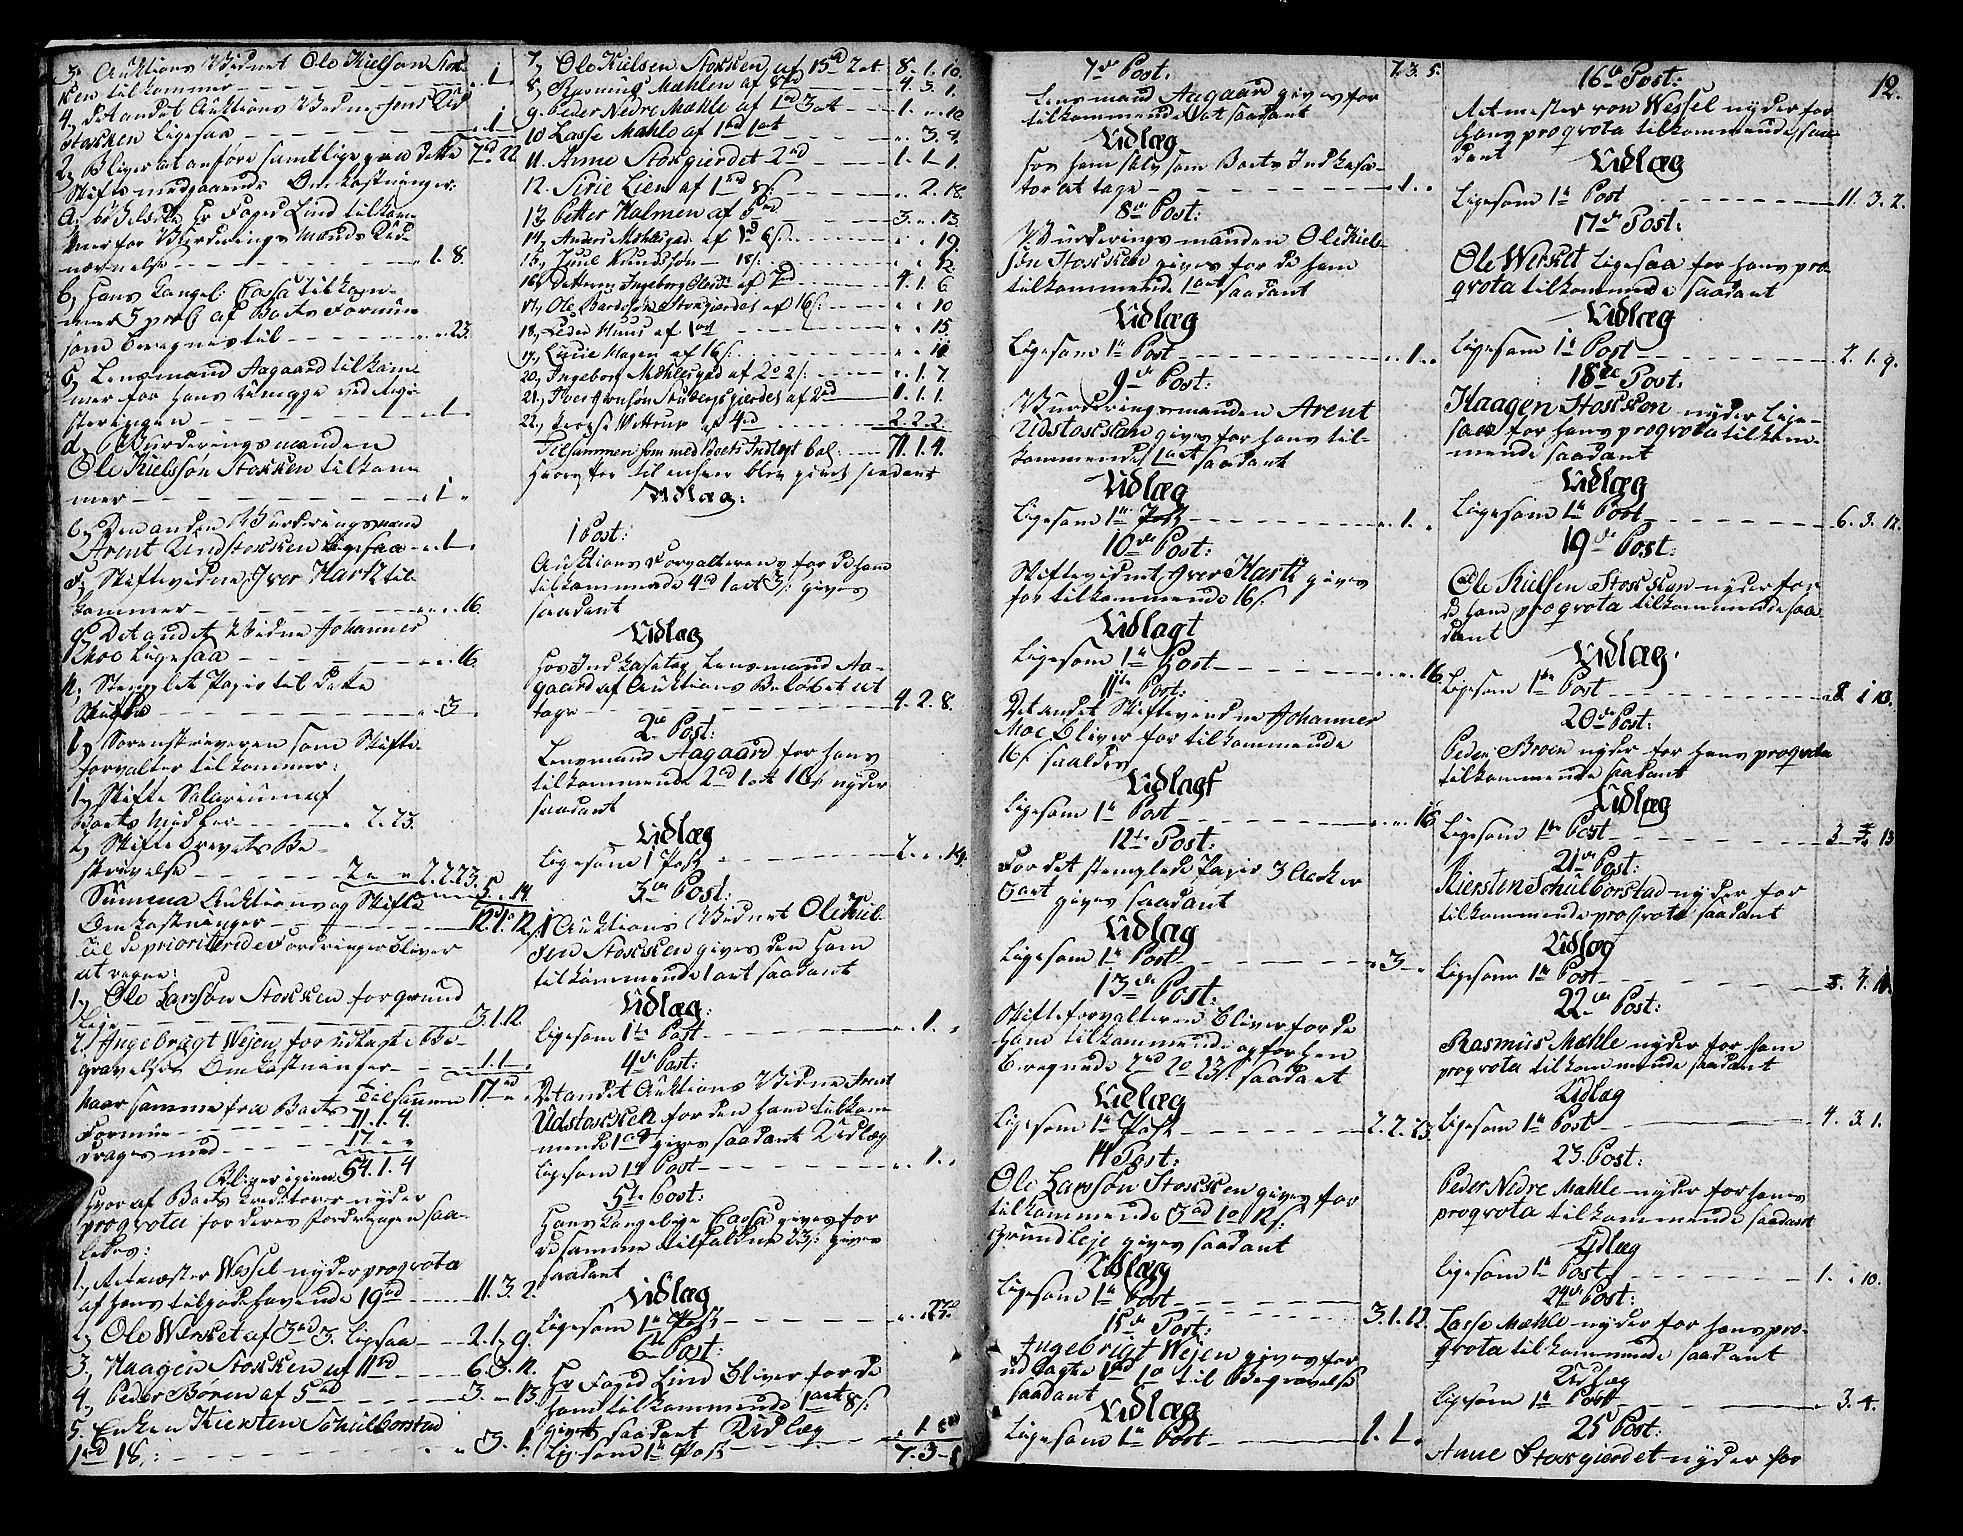 3, Auktions Vidnet Ole Kielsøn Stok-
ken tilkommer - - - 1 "
4, det andet Auktions Vidne
Stokken Ligesaa - - - 1
2, Bliver at anføre samtlige paa dette
Skifte medgaaende Omkostninger:
Hr Foged Lind tilkom-
mer for Vurderings Mænds Ud-
nævnelse - - - " 1. 8.
b, Hans Kongel: Cassa tilkom-
mer af Boets Formue
som beregnes til - - - " " 23.
c, Lensmand Aagaard tilkom-
mer for hans Umage ved Regi-
steringen - - - " 1 "
d, Vurderingsmanden
Ole Kielssøn Stokken tilkom-
mer - - - " 1 "
e, Den anden Vurderingsmand
Arent Uudstokken ligesaa - - " 1 "
f, Skiftevidne Iver Hartz til-
kommer - - - " " 16.
g, Det andet Vidne Johannes
Moe Ligesaa - - - " " 16.
h, Stemplet Papir til dette
Skifte - - - " 3 "
i, Sorenskriveren som Skifte-
forvalter tilkommer:
1, Skifte Salarium af
Boets Midler - - - " 2. 23.
2, Skiftebrevets Be-
skrivelse - - 2 " " 2. 2. 23.
Summa Auktions og Skifte
Omkostninger - - - 12. 1. 12.
Til de prioriterede Fordringer bliver
at regne:
1, Ole Larsøn Stokken for grund
Leje - - - 3. 1. 12.
2, Ingebrigt Wejen for udlagte Be-
gravelses Omkostninger - - 1. 1 "
Tilsammen 17 " "
Naar samme fra Boets
Formue - - - 71. 1. 4.
drages med - - - 17 " "
Bliver igien 54. 1. 4
Hvoraf Boets Kreditorer nyder
proqvota for deres Fordringer saa-
ledes:
1, Ritmester Wessel nyder proqvota
af hans tilgodehavende 19rd - - 11. 3. 2.
2, Ole Wirket af 3rd 3. ligesaa - - 2. 1. 9.
3, Haagen Stokken af 11rd - - 6. 3. 12.
4, Peder Børen af 5rd - - 3. " 13.
5. Enken Kiersten Schulborstad
1rd 18, - - - " 3. 1.
7, Ole Kielsen Stokken af 15rd 2 ort 8. 1. 10.
8, Rasmus Mæhlen af 8rd - - 4. 3. 1.
9. Peder Nedre Mæhle af 1rd 3 ort - - 1. " 10
10 Lasse Mæhle af 1rd 1 ort - - " 3. 4.
11. Anne Storgierdet 2rd - - 1. 1. 1.
12. Sirie Lien af 1rd - - " 2. 18.
13, Petter Holmen af 5rd - - 3. " 13.
14, Anders Mæhlsgad: af 1rd 6 s: - - " " 19.
15, Juul Knudssøn - 18 s: - - " " 12.
16, Datteren Ingeborg Olesd: af 2rd - - 4. 1. 6
17, Ole Bardssøn Storgierdet af 16 s: - - " " 10
18, Peder Muus af 1 ort - - " " 15.
19, Lucie Hagen af 16 s: - - " " 10
20, Ingeborg Mæhlsgad af 2 o 2 s: - - " 1. 7
21, Iver Arnsøn Stubergsgierdet af 2rd - - 1. 1. 1.
22, Wettrup af 4rd - - 2. 2. 2
Tilsammen som med Boets Indtægt bal: - - 71. 1. 4.
Hvorefter til enhver blev givet saadant
Udlæg:
1 Post:
Auktions Forvalteren for de ham
tilkommende 4rd 1 ort 3 s: gives
saadant
Udlæg
Hos Indkasator Lensmand Aa-
gaard af Auktions Beløbet at
tage - - - 4. 2. 8.
2de Post:
Lensmand Aagaard for hans
tilkommende 2rd 1 ort 16 s: nyder
saadant
Udlæg
Ligesom 1 Post - - - 2. " 14.
3die Post:
Auktions Vidnet Ole Kiel-
sen Stokken gives den ham
tilkommende 1 ort saadant
Udlæg:
Ligesom 1te Post - - - " 1. "
4de Post:
Det andet Auktions Vidne Arent
Udstokken for den ham tilkom-
mende 1 ort gives saadant Udlæg
Ligesom 1te Post - - - " 1. "
5te Post:
Hans Kongelige Cassa gives for
de samme tilfaldne 23 s: gives
saadant
Udlæg
Ligesom 1te Post - - - " " 23
6te Post:
Hr Foged Lind bliver for de
ham tilkommende 1 ort 8 s:
givet saadant Udlæg
Ligesom 1te Post - - - " 1 8
7. 3 - 5
7de Post: 7. 3. 5.
Lensmand Aagaard gives for
tilkommende 1 ort saadant
Udlæg
Hos ham selv som Boets Indkasa-
tor at tage - - - " 1. "
8de Post:
Vurderingsmanden Ole Kiel-
søn Stokken gives for de ham
tilkommende 1 ort saadant
Udlæg
Ligesom 1te Post - - - " 1. "
9de Post:
Vurderingsmanden Arent
Udstokken gives for hans til-
kommende 1 ort saadant
Udlæg
Ligesom 1te Post - - - " 1. "
10de Post:
Skiftevidnet Iver Hartz gives
for tilkommende 16 s:
Udlægt
Ligesom 1te Post - - - " " 16
11te Post:
Det andet Skiftevidne Johannes
Moe bliver for tilkommende
16 s: saaledes
Udlagt
Ligesom 1te Post - - - " " 16
12te Post:
For det stemplede Papir 3 Arker
3 ort gives saadant
Udlæg
Ligesom 1te Post - - - " 3 - "
13de Post:
Skifteforvalteren bliver for de
ham tilkommende og forhen
beregnede 2rd 2 o 23 s: saadant
Udlæg
Ligesom 1te Post - - - 2. 2. 23.
14 Post:
Ole Larsøn Stokken gives for
tilkommende 3rd 1 o 12 s:
Grundleje gives saadant
Udlæg
Ligesom 1te Post - - - 3. 1. 12.
15de Post:
Ingebrigt Wejen gives for
udlagte 1rd 1 o til Begravelse
saadant
Udlæg
Ligesom 1te Post - - - 1. 1. "
12.
16de Post:
Ritmester von Wessel nyder for
hans proqvota tilkommende saa-
dant
Udlæg
Ligesom 1te Post - - - 11. 3. 2.
17de Post:
Ole Wirket ligesaa for hans pro-
qvota tilkommende saadant
Udlæg
Ligesom 1te Post - - - 2. 1. 9.
18de Post:
Haagen Stokken nyder lige-
saa for hans proqvota tilkom-
mende saadant
Udlæg
Ligesom 1te Post - - - 6. 3. 12.
19de Post:
Ole Kielsen Stokken nyder for
de ham proqvota tilkommende saa-
dant
Udlæg.
Ligesom 1te Post - - - 8 1 10.
20de Post:
Peder Broen nyder for hans proqvota
tilkommende saadant
Udlæg
Ligesom 1te Post - - - 3 " 13
21de Post:
Kiersten Schulborstad nyder for
tilkommende proqvota saadant
Udlæg
Ligesom 1te Post - - - " 3. 1.
22de Post:
Rasmus Mæhle nyder for ham
proqvota tilkommende saadant
Udlæg
Ligesom 1te Post - - - 4. 3. 1.
23. Post:
Peder Nedre Mæhle nyder for hans
proqvota tilkommende saadant
Udlæg
Ligesom 1te Post - - - 1. " 10.
24de Post:
Lasse Mæhle nyder for hans pro-
qvota tilkommende saadant
Udlæg
Ligesom 1te Post - - - " 3. 4.
25 Post:
Anne Storgierdet nyder for